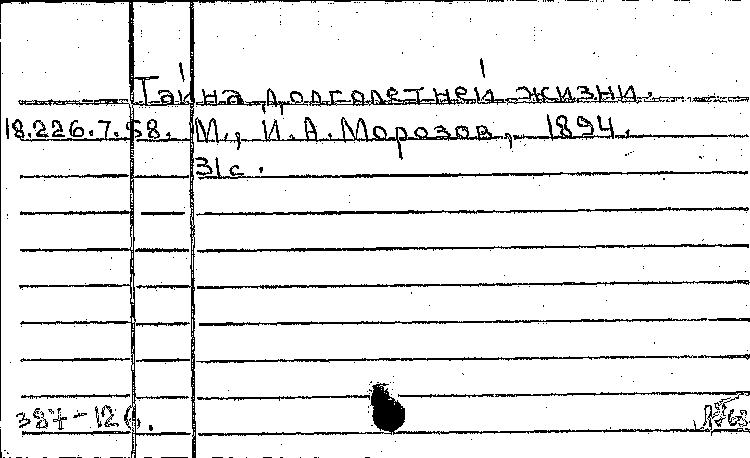 Тайна долголетней жизни.
18.226.7.58. М., И.А. Морозов, 1894.
31с.